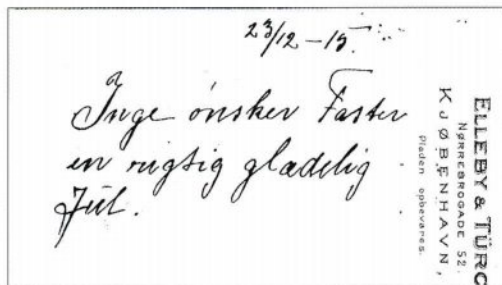 23/12 – 15.
Inge ønsker Faster
en rigtig glædelig
Jul.
ELLEBY & TÜRC
NØRREBROGADE 52.
KJØBENHAVN,
Pladen opbevares.